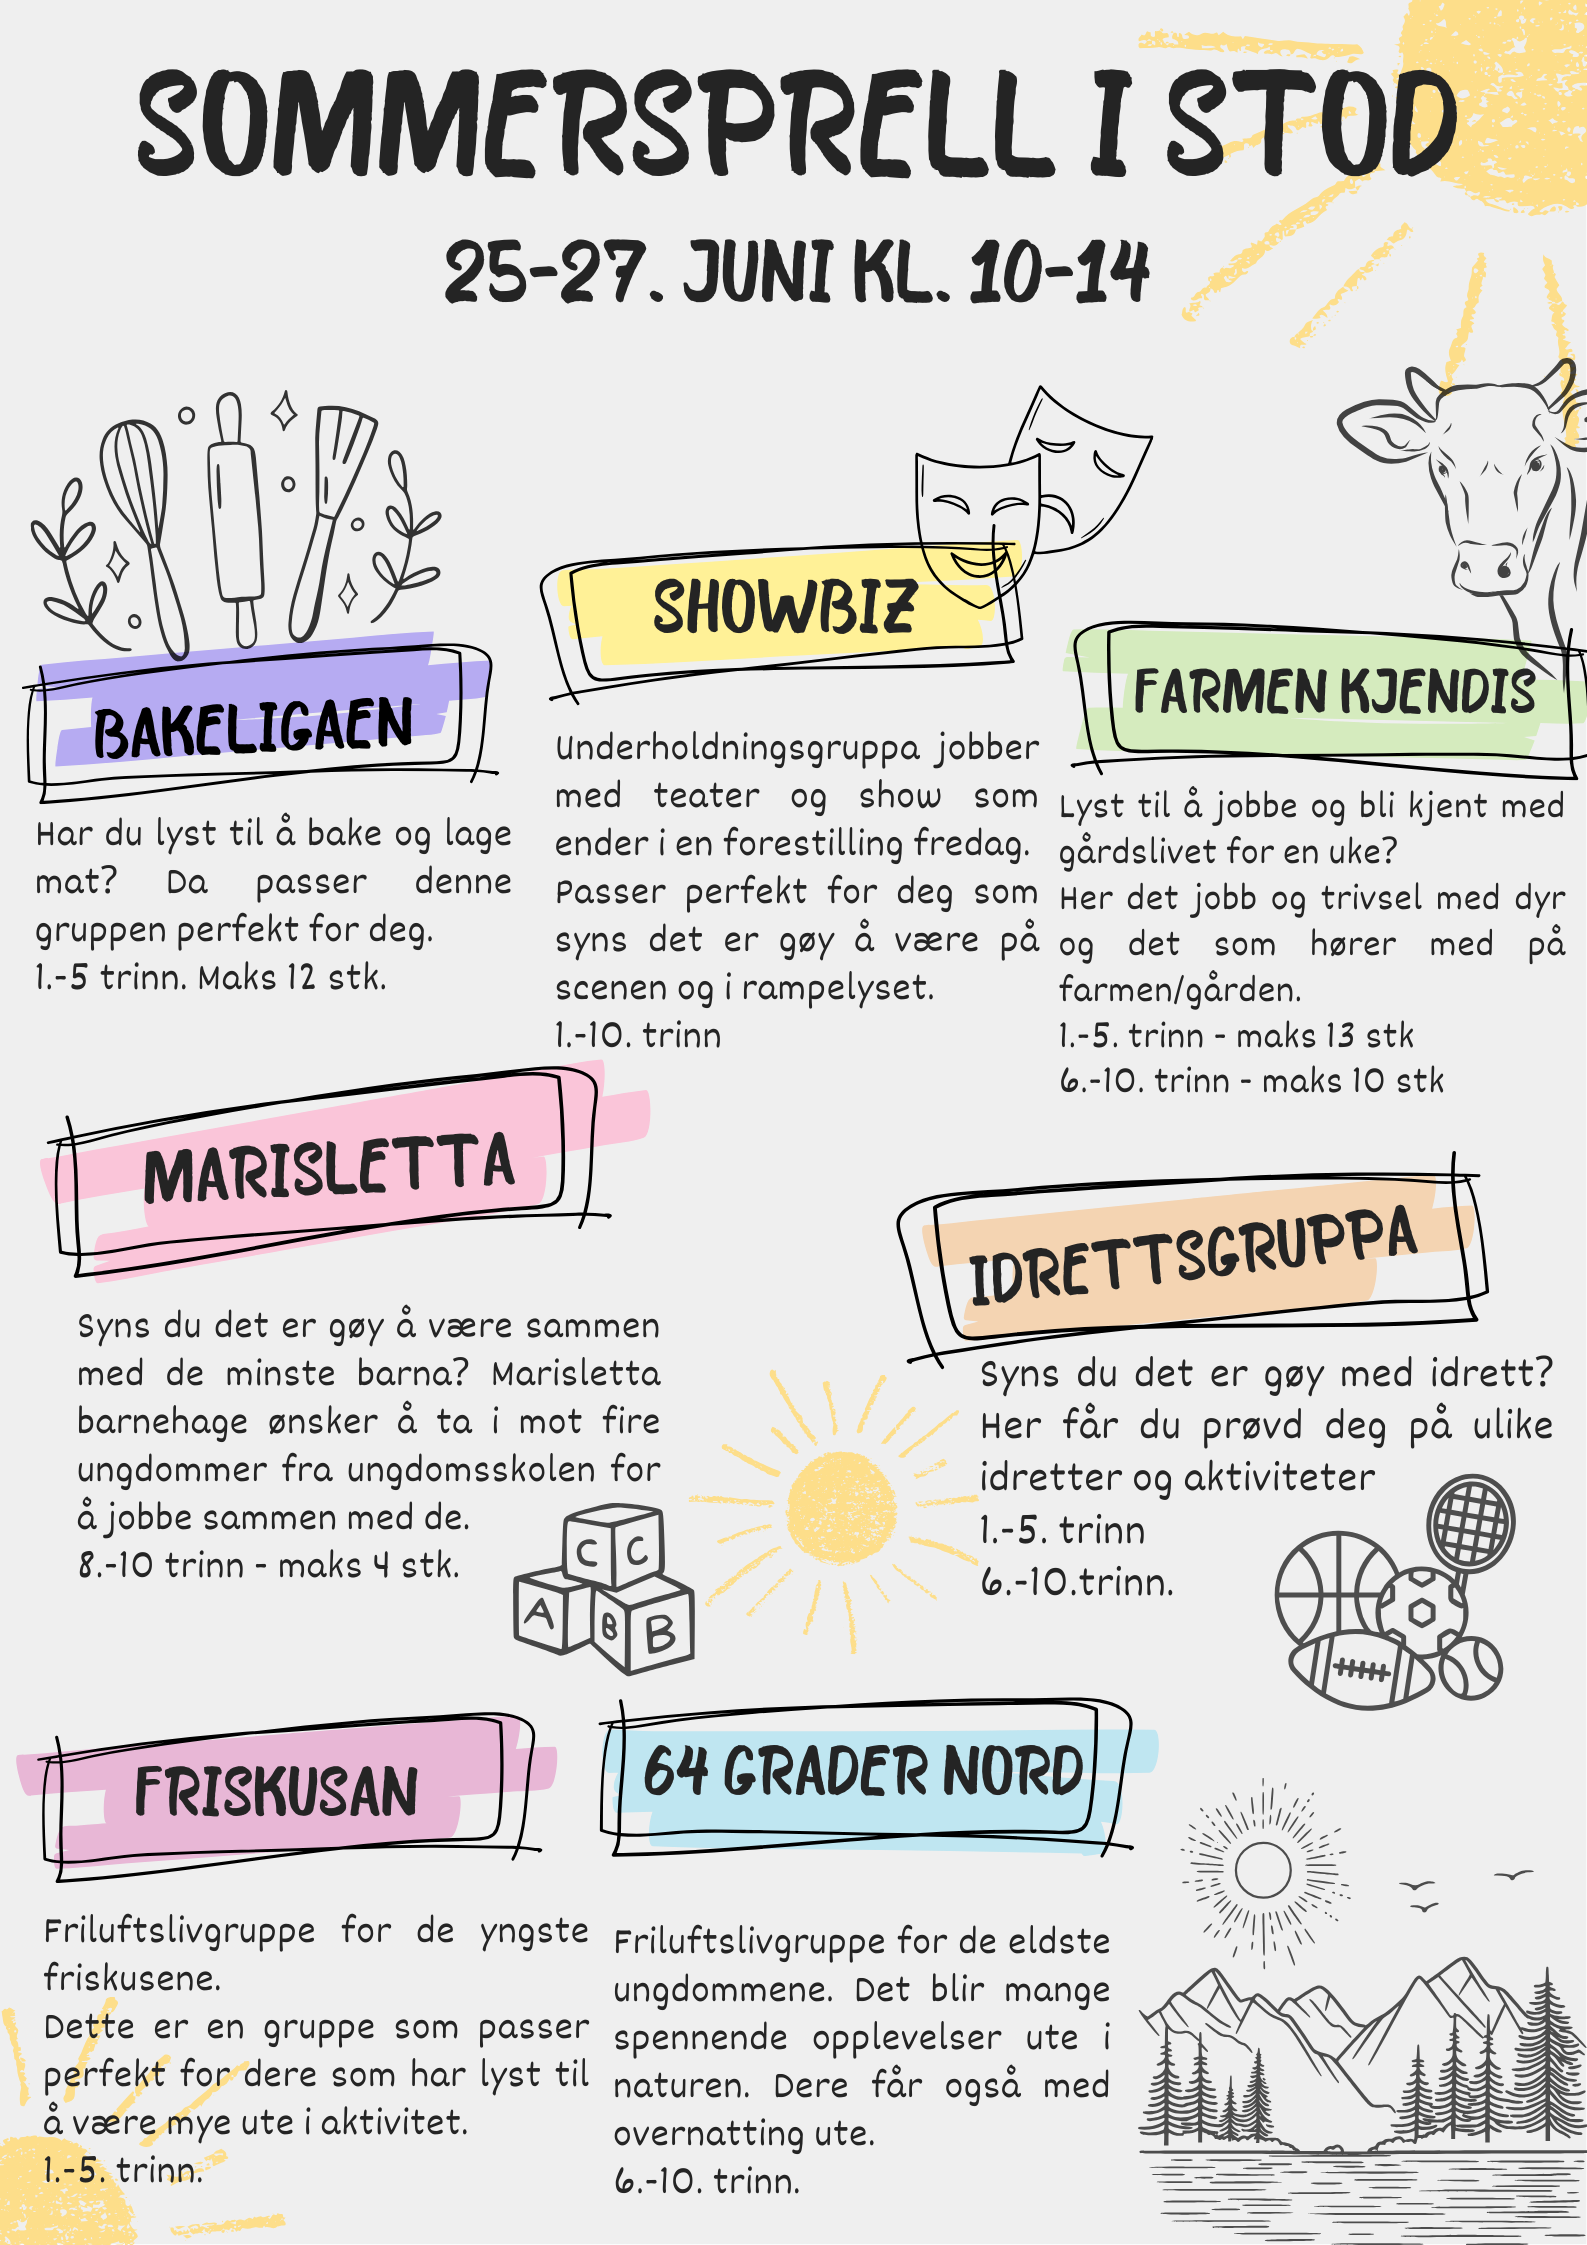 SOMMERSPRELL I STOD
25-27. JUNI KL. 10-14
BAKELIGAEN
Har du lyst til å bake og lage
mat? Da passer denne
gruppen perfekt for deg.
1.-5 trinn. Maks 12 stk.
SHOWBIZ
Underholdningsgruppa jobber
med teater og show som
ender i en forestilling fredag.
Passer perfekt for deg som
syns det er gøy å være på
scenen og i rampelyset.
1.-10. trinn
FARMEN KJENDIS
Lyst til å jobbe og bli kjent med
gårdslivet for en uke?
Her det jobb og trivsel med dyr
og det som hører med på
farmen/gården.
1.-5. trinn - maks 13 stk
6.-10. trinn - maks 10 stk
MARISLETTA
Syns du det er gøy å være sammen
med de minste barna? Marisletta
barnehage ønsker å ta i mot fire
ungdommer fra ungdomsskolen for
å jobbe sammen med de.
8.-10 trinn - maks 4 stk.
C C
A B B
IDRETTSGRUPPA
Syns du det er gøy med idrett?
Her får du prøvd deg på ulike
idretter og aktiviteter
1.-5. trinn
6.-10.trinn.
FRISKUSAN
Friluftslivgruppe for de yngste
friskusene.
Dette er en gruppe som passer
perfekt for dere som har lyst til
å være mye ute i aktivitet.
1.-5. trinn.
64 GRADER NORD
Friluftslivgruppe for de eldste
ungdommene. Det blir mange
spennende opplevelser ute i
naturen. Dere får også med
overnatting ute.
6.-10. trinn.